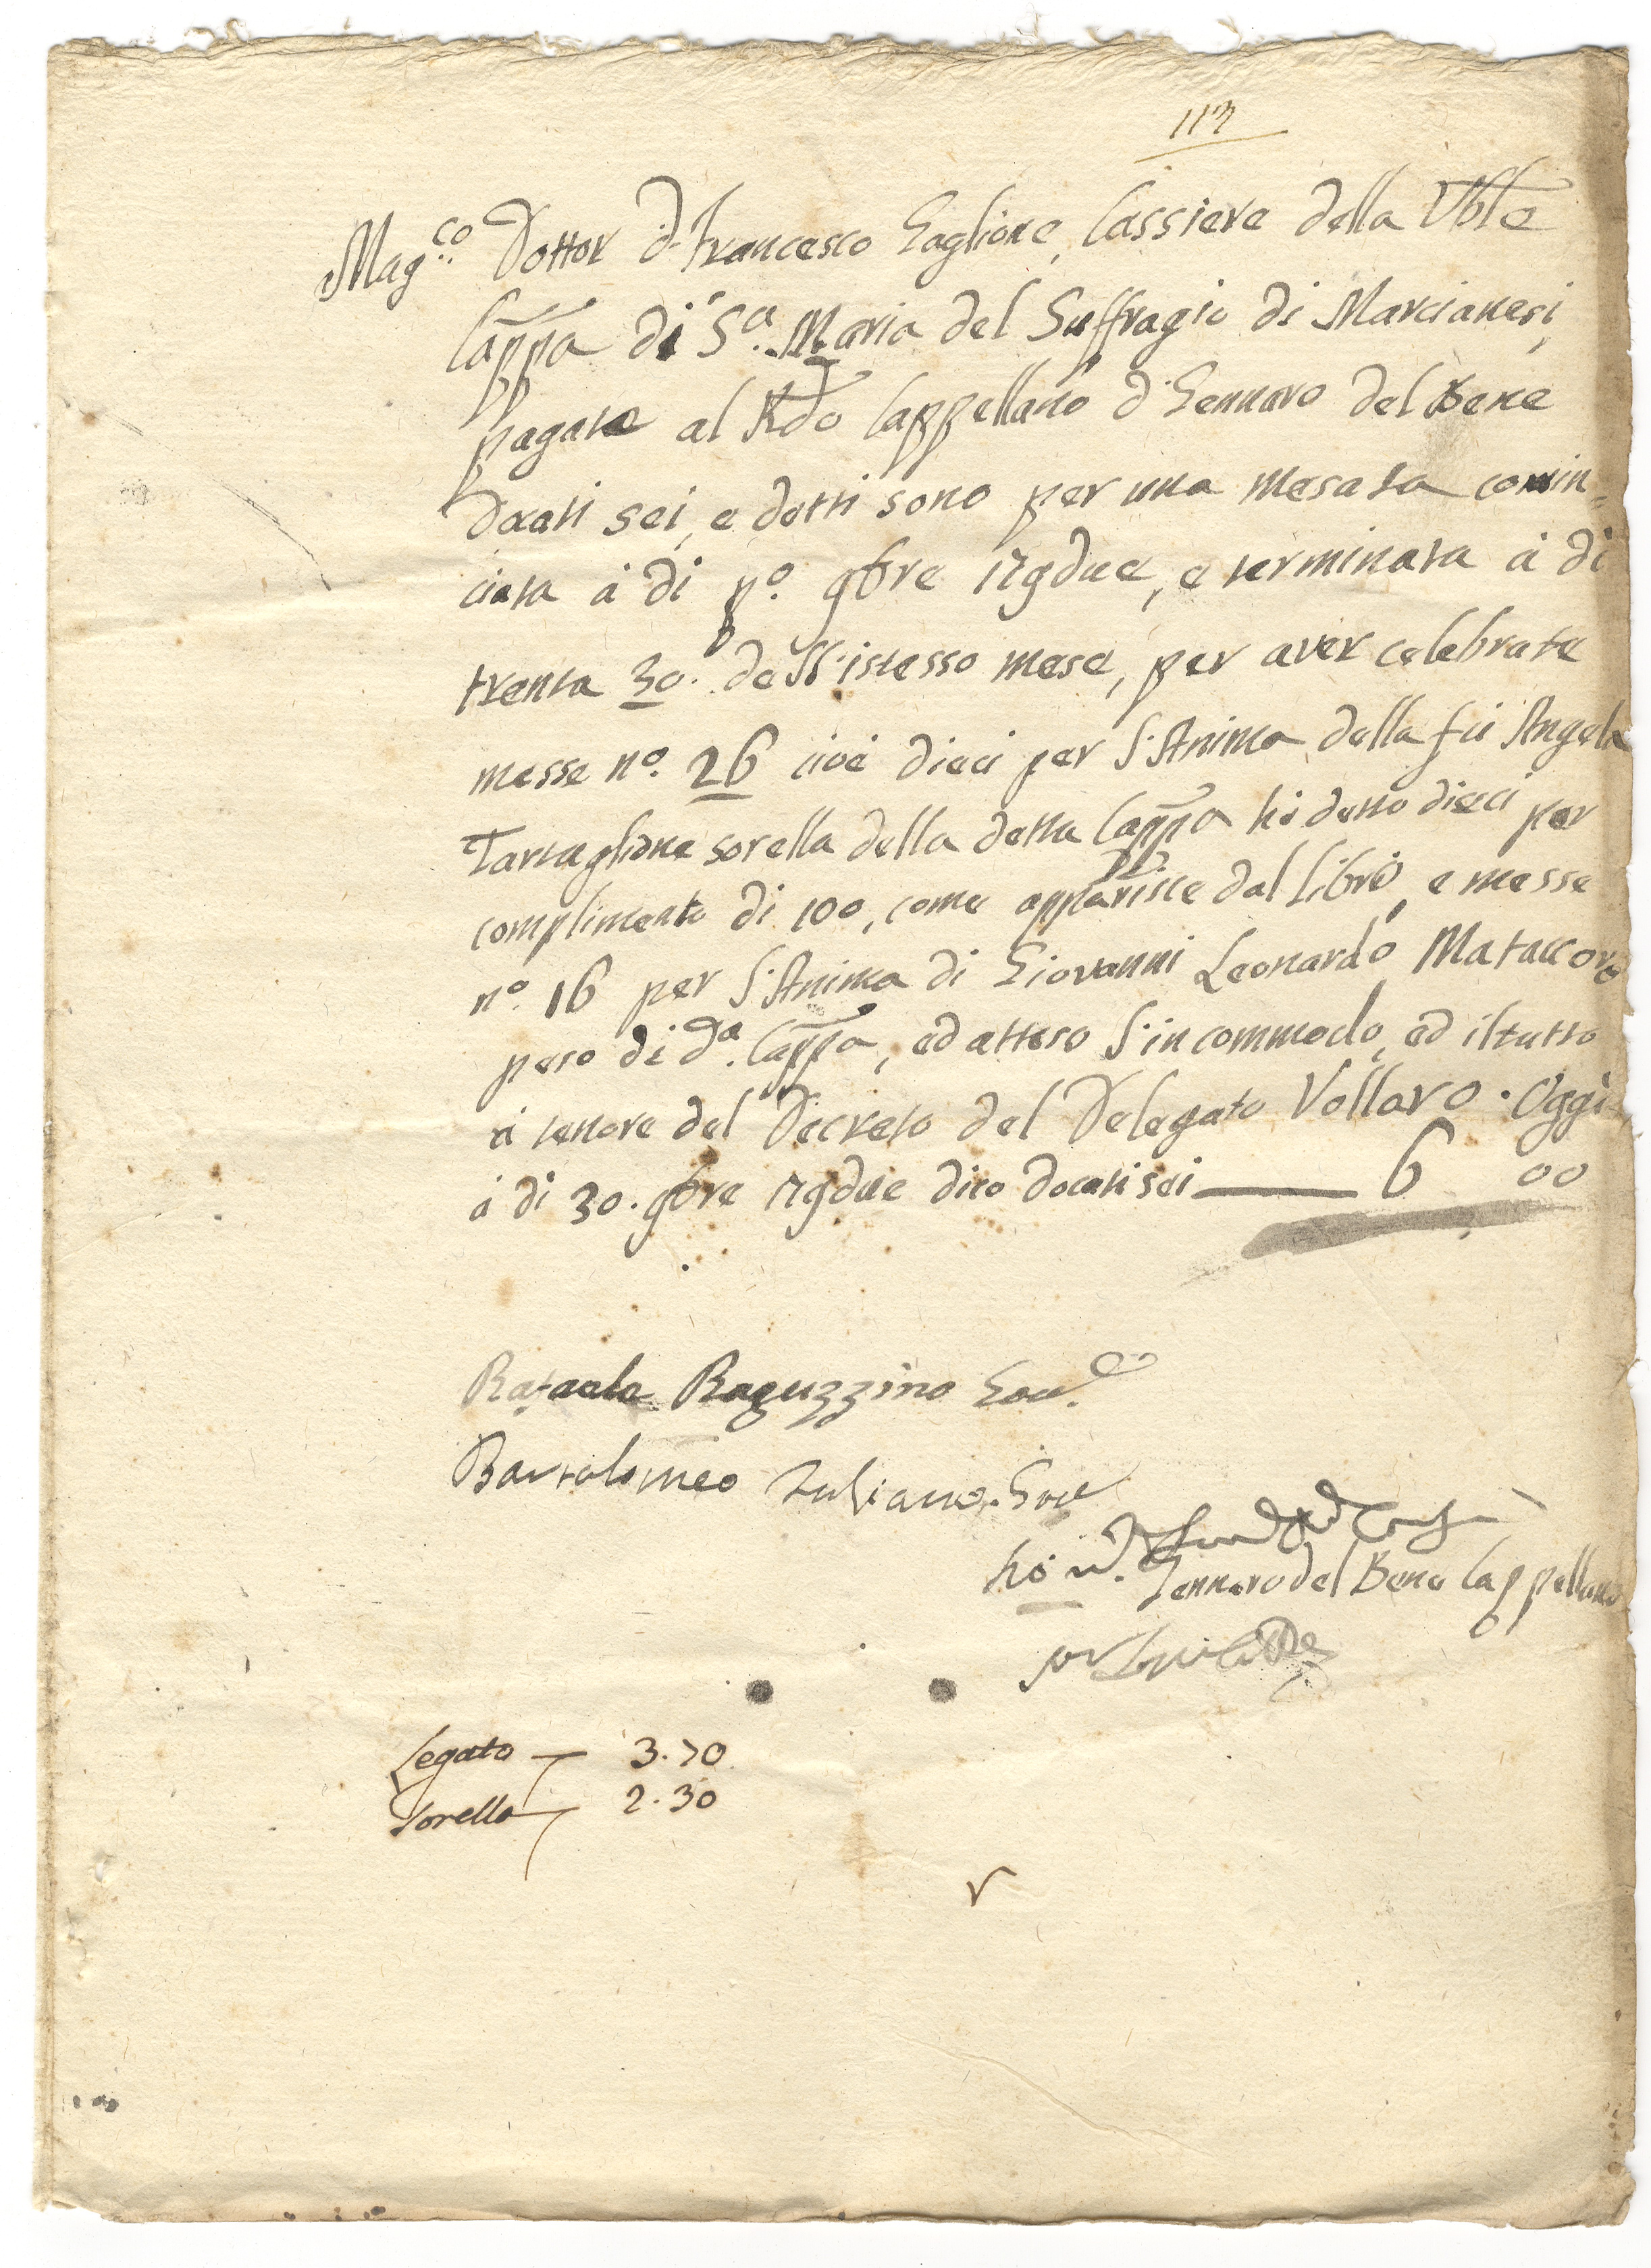 113
Mag.co Dottor D. Francesco Zaglione, Cassiere della Vble
Cappa di S.a Maria del Suffragio di Marcianesi,
pagate al Rdo Cappellano D. Gennaro del Bene
Docati sei, e detti sono per una mesata comin=
ciata à di p.o 9bre 179due, e terminata à di
trenta 30. dell'istesso mese, per aver celebrate
messe n.o 26 cioè dieci per l'Anima della fù Angela
Tartaglione sorella della detta Cappa hò detto dieci per
complimento di 100, come apparisce dal libro, e messe
n.o 16 per l'Anima di Giovanni Leonardo Mataccoro
peso di d.a Cappa, ed atteso l'incommodo, ed il tutto
à tenore del Decreto del Delegato Vollaro. Oggi
à di 30. 9bre 179due dico docati sei — 6 00
Rafaele Raguzzino Gov.e
Bartolomeo Iuliano Gov.e
Gennaro del Bene Cappellano
Legato — 3.70
Sorella — 2.30